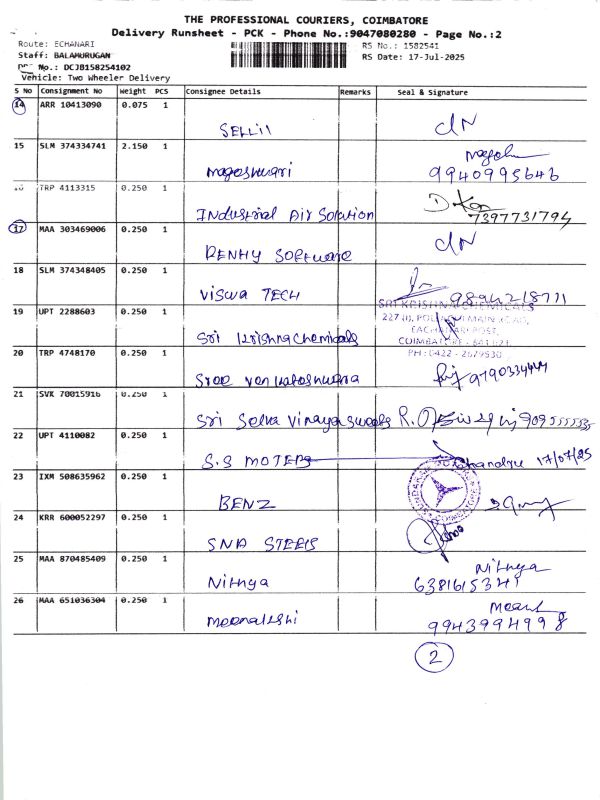 THE PROFESSIONAL COURIERS, COIMBATORE
Delivery Runsheet - PCK - Phone No.:9047080280 - Page No.:2
Route: ECHANARI RS No.: 1582541
Staff: BALAMURUGAN RS Date: 17-Jul-2025
No.: DCJB158254102
Vehicle: Two Wheeler Delivery
S No Consignment No Weight PCS Consignee Details Remarks Seal & Signature
14 ARR 10413090 0.075 1
SELLii dN
15 SLM 374334741 2.150 1
mageshwari 9940995646
16 TRP 4113315 0.250 1
Industrial Air Solution 7397731794
17 MAA 303469006 0.250 1
DENHY SOFTWARE dN
18 SLM 374348405 0.250 1
Viswa TECH
SRI KRISHNA CHEMICALS
19 UPT 2288603 0.250 1
EACHANARI POST,
Sri Krishna Chemicals COIMBATORE - 641 021.
20 TRP 4748170 0.250 1 PH: 0422 - 2679530
Sree Venkateshwara 9790334444
21 SVK 70015916 0.250 1
Sri Selva Vinayaga sweets
22 UPT 4110082 0.250 1
S.S MOTERS Chandru 17/07/25
23 IXM 508635962 0.250 1
BENZ
24 KRR 600052297 0.250 1
SNA STEELS
25 MAA 870485409 0.250 1
Nithya Nithya
6381615341
26 MAA 651036304 0.250 1
meenakshi 9943994998
2